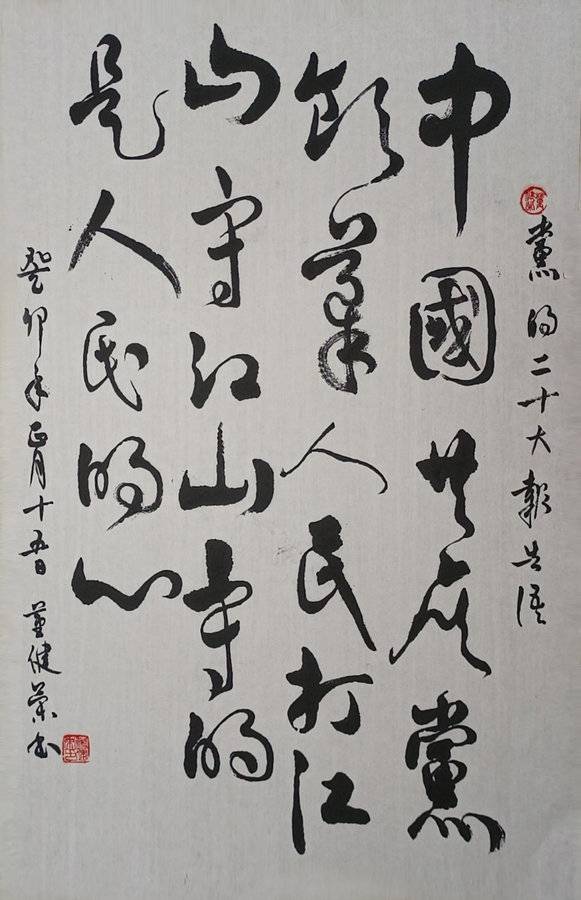 黨的二十大報告语
中國共产黨
领導人民打江
山守江山守的
是人民的心
癸卯年正月十五日 董健荣书